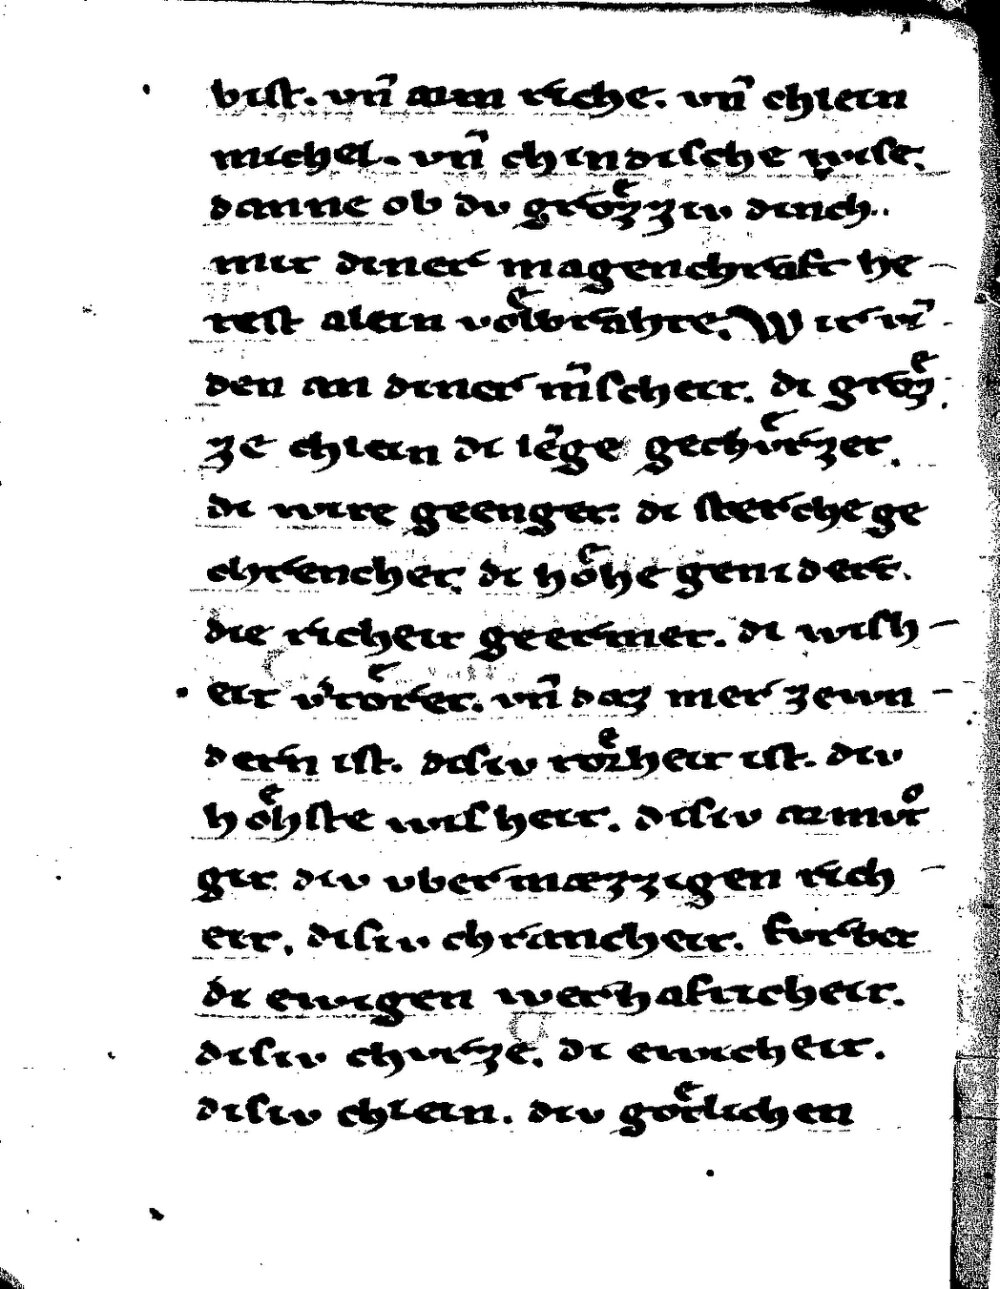 bist. vñ arm riche. vñ chlein
michel. vñ chindische wise.
danne ob dv groͤzziv dinch.
mit diner magenchraft he-
rest alein voͤlbrahte. Wir vī-
den an diner m̄scheit. di groͤz
ze chlein di lēge gechvͤrzet.
di wite geenget. di sterche ge
chrenchet. di hoͤhe genidert.
die richeit geermet. di wish-
eit v'toͤret. vñ daz mer zewn-
dern ist. disiv toͤrheit ist. div
hoͤhste wisheit. disiv armvͦt
git div vbermæzzigen rich-
eit. disiv chrancheit. fvrbet
di ewigen werhafticheit.
disiv chvrze. di ewicheit.
disiv chlein. div goͤtlichen